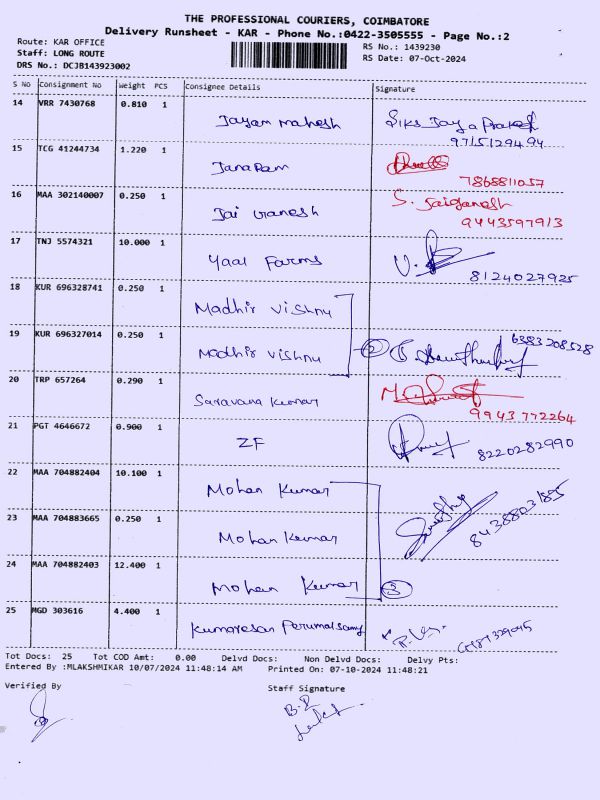 THE PROFESSIONAL COURIERS, COIMBATORE
Delivery Runsheet - KAR - Phone No.:0422-3505555 - Page No.:2
Route: KAR OFFICE
Staff: LONG ROUTE
DRS No.: DCJB143923002
RS No.: 1439230
RS Date: 07-Oct-2024
S No Consignment No Weight PCS Consignee Details Signature
14 VRR 7430768 0.810 1 Jayam Mahesh
9715129494
15 TCG 41244734 1.220 1 Janaram
7868811057
16 MAA 302140007 0.250 1 Jai Ganesh S. Jaiganesh
9443597913
17 TNJ 5574321 10.000 1 Yaal Farms
8124027925
18 KUR 696328741 0.250 1 Madhir Vishnu
19 KUR 696327014 0.250 1 Madhir Vishnu 2 6383208528
20 TRP 657264 0.290 1 Saravana Kumar
9943772264
21 PGT 4646672 0.900 1 ZF
8220282990
22 MAA 704882404 10.100 1 Mohan Kumar
23 MAA 704883665 0.250 1 Mohan Kumar
24 MAA 704882403 12.400 1 Mohan Kumar 3
25 MGD 303616 4.400 1 Kumaresan Perumalsamy
Tot Docs: 25 Tot COD Amt: 0.00 Delvd Docs: Non Delvd Docs: Delvy Pts:
Entered By :MLAKSHMIKAR 10/07/2024 11:48:14 AM Printed On: 07-10-2024 11:48:21
Verified By Staff Signature